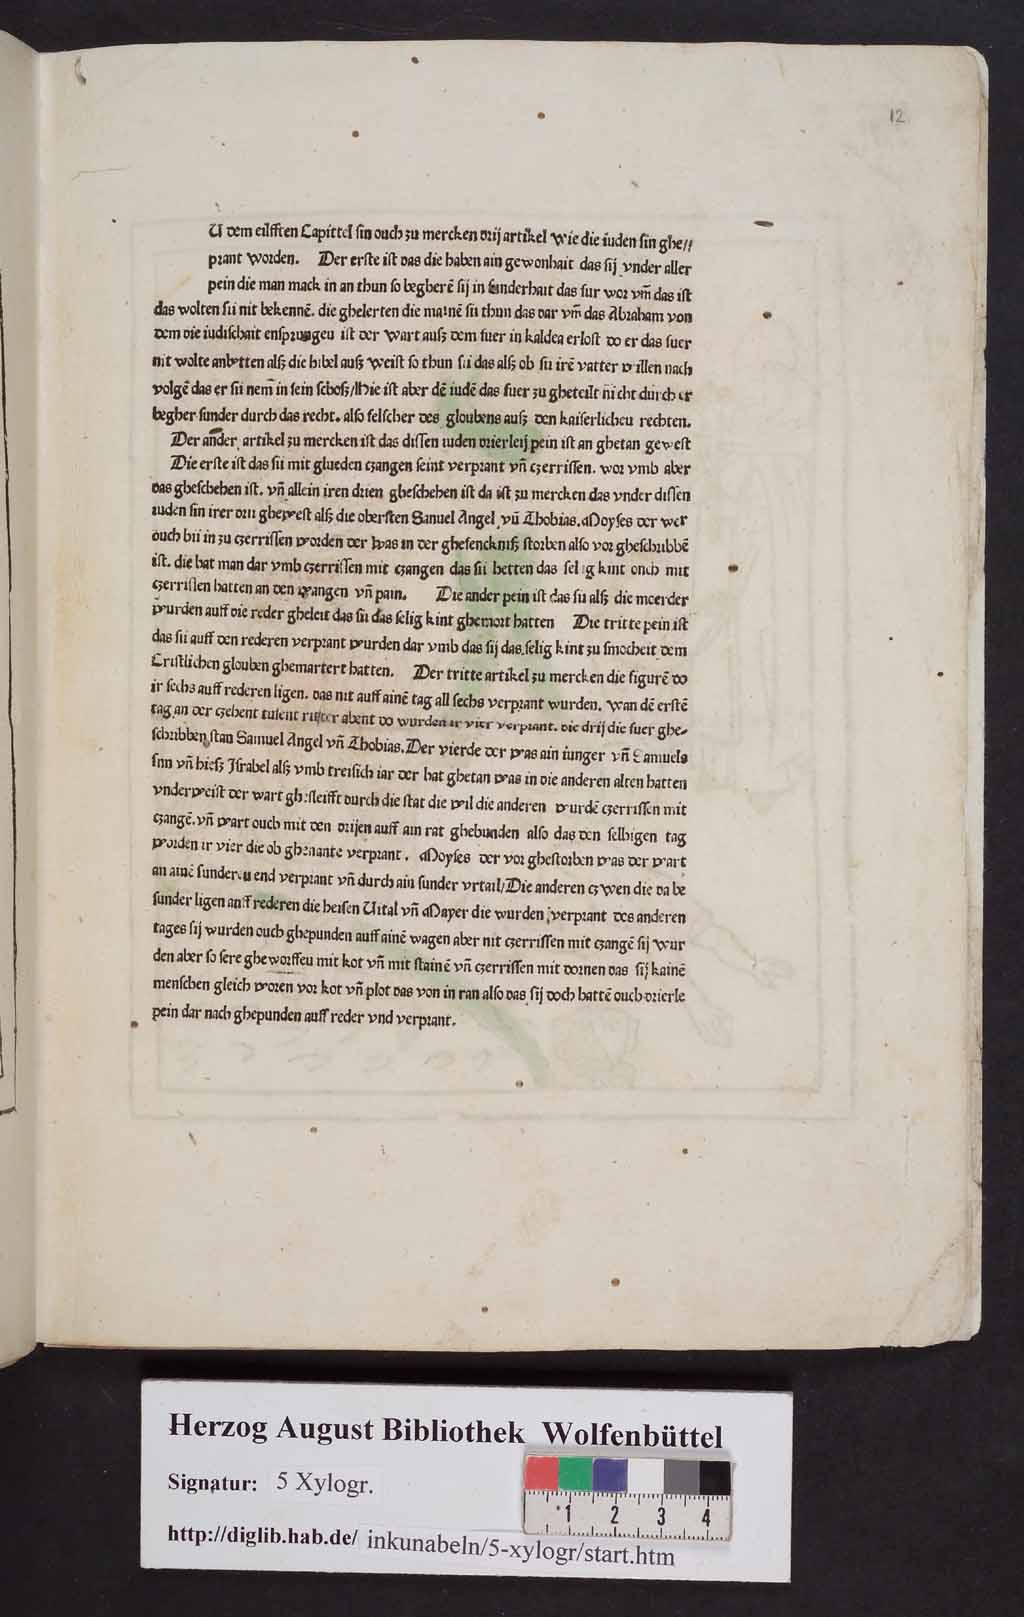 12
U dem eilfften Capittel sin ouch zu mercken drij artikel wie die iuden sin ghe//
prant worden. Der erste ist das die haben ain gewonhait das sij vnder aller
pein die man mack in an thun so begherē sij in sunderhait das fur wor vm̄ das ist
das wolten sii nit bekennē. die ghelerten die mainē sii thun das dar vm̄ das Abraham von
dem die iudischait ensprungeu ist der wart ausz dem fuer in kaldea erlost do er das fuer
nit wolte anbetten alsz die bibel ausz weist so thun sii das alsz ob sii irē vatter willen nach
volgē das er sii nem̄ in sein schosz/Hie ist aber dē iudē das fuer zu gheteilt nicht durch er
begher sunder durch das recht. also felscher des gloubens ausz den kaiserlicheu rechten.
Der ander artikel zu mercken ist das dissen iuden drierleij pein ist an ghetan gewest
Die erste ist das sii mit glueden czangen seint verprant vn̄ czerrissen. wor vmb aber
das gheschehen ist. vn̄ allein iren drien gheschehen ist da ist zu mercken das vnder dissen
iuden sin irer drii ghewest alsz die obersten Samuel Angel vn̄ Thobias. Moyses der wer
ouch bii in zu czerrissen worden der was in der ghefencknisz storben also vor gheschribbē
ist. die hat man dar vmb czerrissen mit czangen das sii hetten das selig kint ouch mit
czerrissen hatten an den wangen vn̄ pain. Die ander pein ist das sii alsz die moerder
wurden auff die reder gheleit das sii das selig kint ghemort hatten Die tritte pein ist
das sii auff den rederen verprant wurden dar vmb das sij das selig kint zu smocheit dem
Cristlichen glouben ghemartert hatten. Der tritte artikel zu mercken die figurē do
ir sechs auff rederen ligen. das nit auff ainē tag all sechs verprant wurden. wan dē erstē
tag an der czehent tusent ritter abent do wurden ir vier verprant. die drij die fuer ghe-
schribben stan Samuel Angel vn̄ Thobias. Der vierde der was ain iunger vn̄ Samuels
sun vn̄ hiesz Israhel alsz vmb treisich iar der hat ghetan was in die anderen alten hatten
vnderweist der wart ghesleifft durch die stat die wil die anderen wurdē czerrissen mit
czangē. vn̄ wart ouch mit den drijen auff ain rat ghebunden also das den selbigen tag
worden ir vier die ob ghenante verprant. Moyses der vor ghestorben was der wart
an ainē sunderen end verprant vn̄ durch ain sunder vrtail/Die anderen czwen die da be
sunder ligen auff rederen die heisen Uital vn̄ Mayer die wurden verprant des anderen
tages sij wurden ouch ghepunden auff ainē wagen aber nit czerrissen mit czangē sij wur
den aber so sere gheworffeu mit kot vn̄ mit stainē vn̄ czerrissen mit dornen das sij kainē
menschen gleich woren vor kot vn̄ plot das von in ran also das sij doch hattē ouch drierle
pein dar nach ghepunden auff reder vnd verprant.
Herzog August Bibliothek Wolfenbüttel
Signatur: 5 Xylogr.
1 2 3 4
http://diglib.hab.de/ inkunabeln/5-xylogr/start.htm